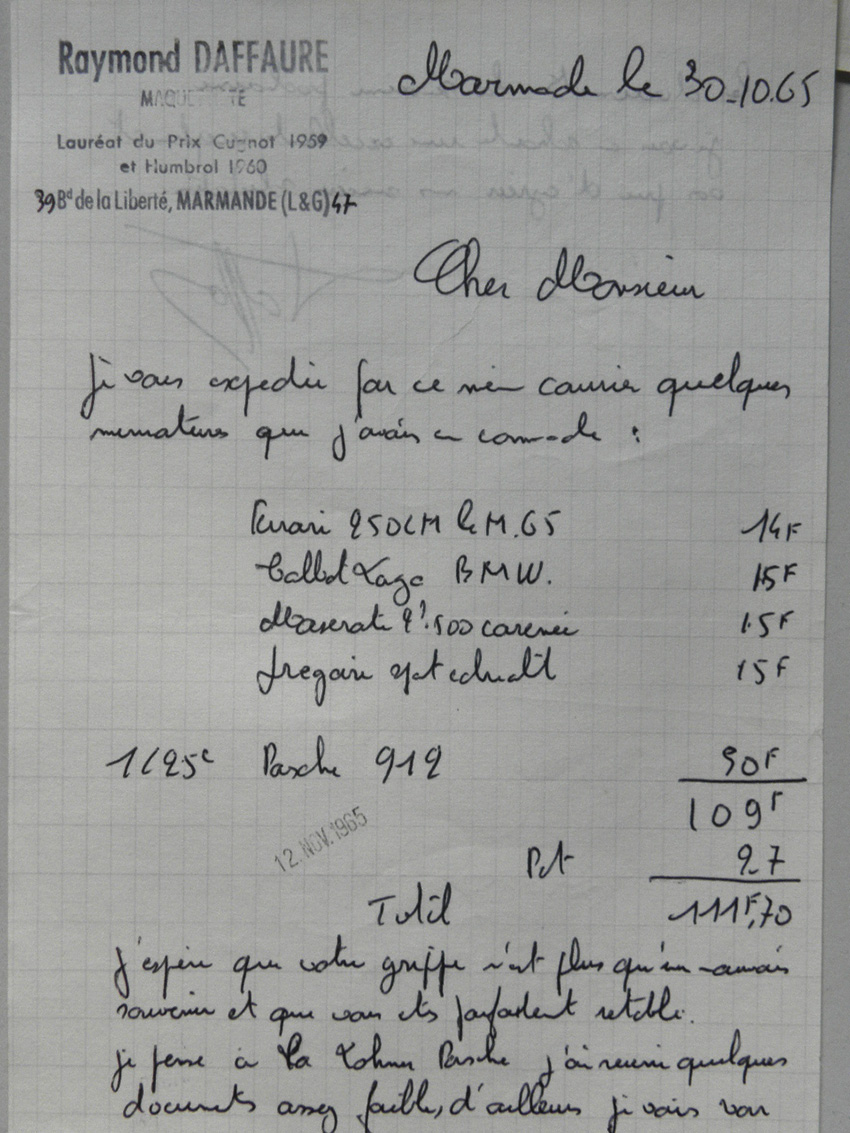 Raymond DAFFAURE
Marmande le 30.10.65
MAQUETTE
Lauréat du Prix Cugnot 1959
et Humbrol 1960
39 Bd de la Liberté, MARMANDE (L&G) 47
Cher Monsieur
je vous expedie par ce même courrier quelques
miniatures que j'avais en commande :
Ferrari 250LM le M. 65 14F
Talbot Lago BMW. 15F
Maserati 2l.500 carenée 15F
fregate 15F
1/25e Porsche 912 50F
109F
12. NOV. 1965
Port 2.7
Total 111F,70
j'espère que votre grippe n'est plus qu'un mauvais
souvenir et que vous etes parfaitement retabli.
je pense à la Porsche j'ai reuni quelques
documents assez faibles, d'ailleurs je vais voir